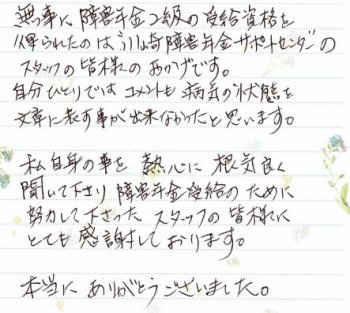 無事に障害年金2級の受給資格を
得られたのは川崎障害年金サポートセンターの
スタッフの皆様のおかげです。
自分ひとりではコメントも病気の状態を
文章に表す事が出来なかったと思います。
私自身の事を熱心に根気良く
聞いて下さり障害年金受給のために
努力して下さったスタッフの皆様に
とても感謝しております。
本当にありがとうございました。